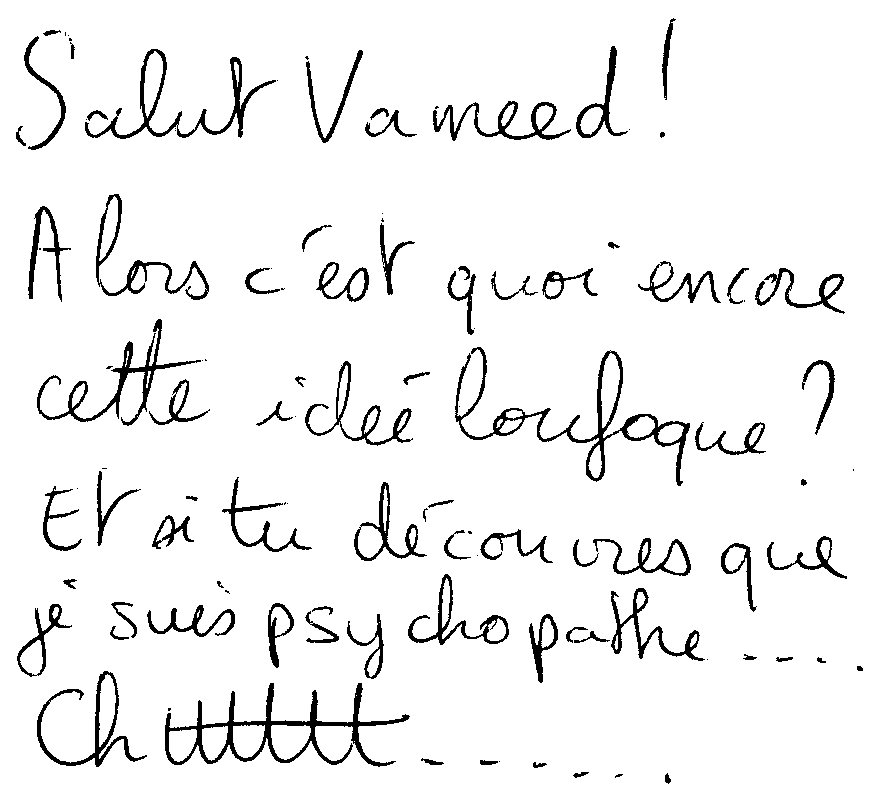 Salut Vameed !
Alors c'est quoi encore
cette ideé loufoque ?
Et si tu découvres que
je suis psychopathe ....
Chuttttt ......